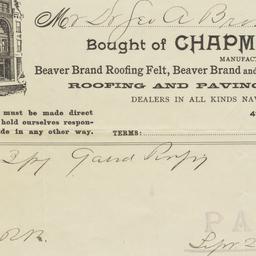 Mr Dr Geo A Br
Bought of CHAPM
MANUFAC
Beaver Brand Roofing Felt, Beaver Brand and
ROOFING AND PAVING
DEALERS IN ALL KINDS NAV
must be made direct
hold ourselves respon-
de in any other way.
TERMS:
3 ply Tarred
Sept 2